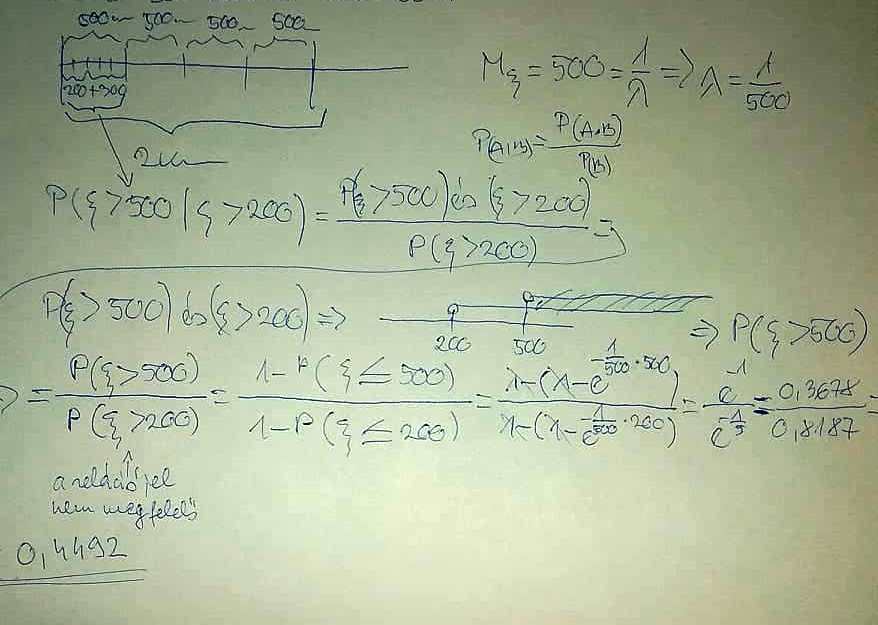 500m 500m 500m 500m
200+300
2km
Mξ = 500 = 1/λ => λ = 1/500
P(A|B) = P(A∩B)/P(B)
P(ξ>500 | ξ>200) = P(ξ>500) és (ξ>200) / P(ξ>200) =
P(ξ>500) és (ξ>200) =>
200 500
=> P(ξ>500)
=> = P(ξ>500)/P(ξ>200) = 1-P(ξ≤500)/1-P(ξ≤200) = 1-(1-e^(-1/500·500))/1-(1-e^(-1/500·200)) = e^-1/e^-1/5 = 0,3678/0,8187 =
a relációjel
nem megfelelő
0,4492